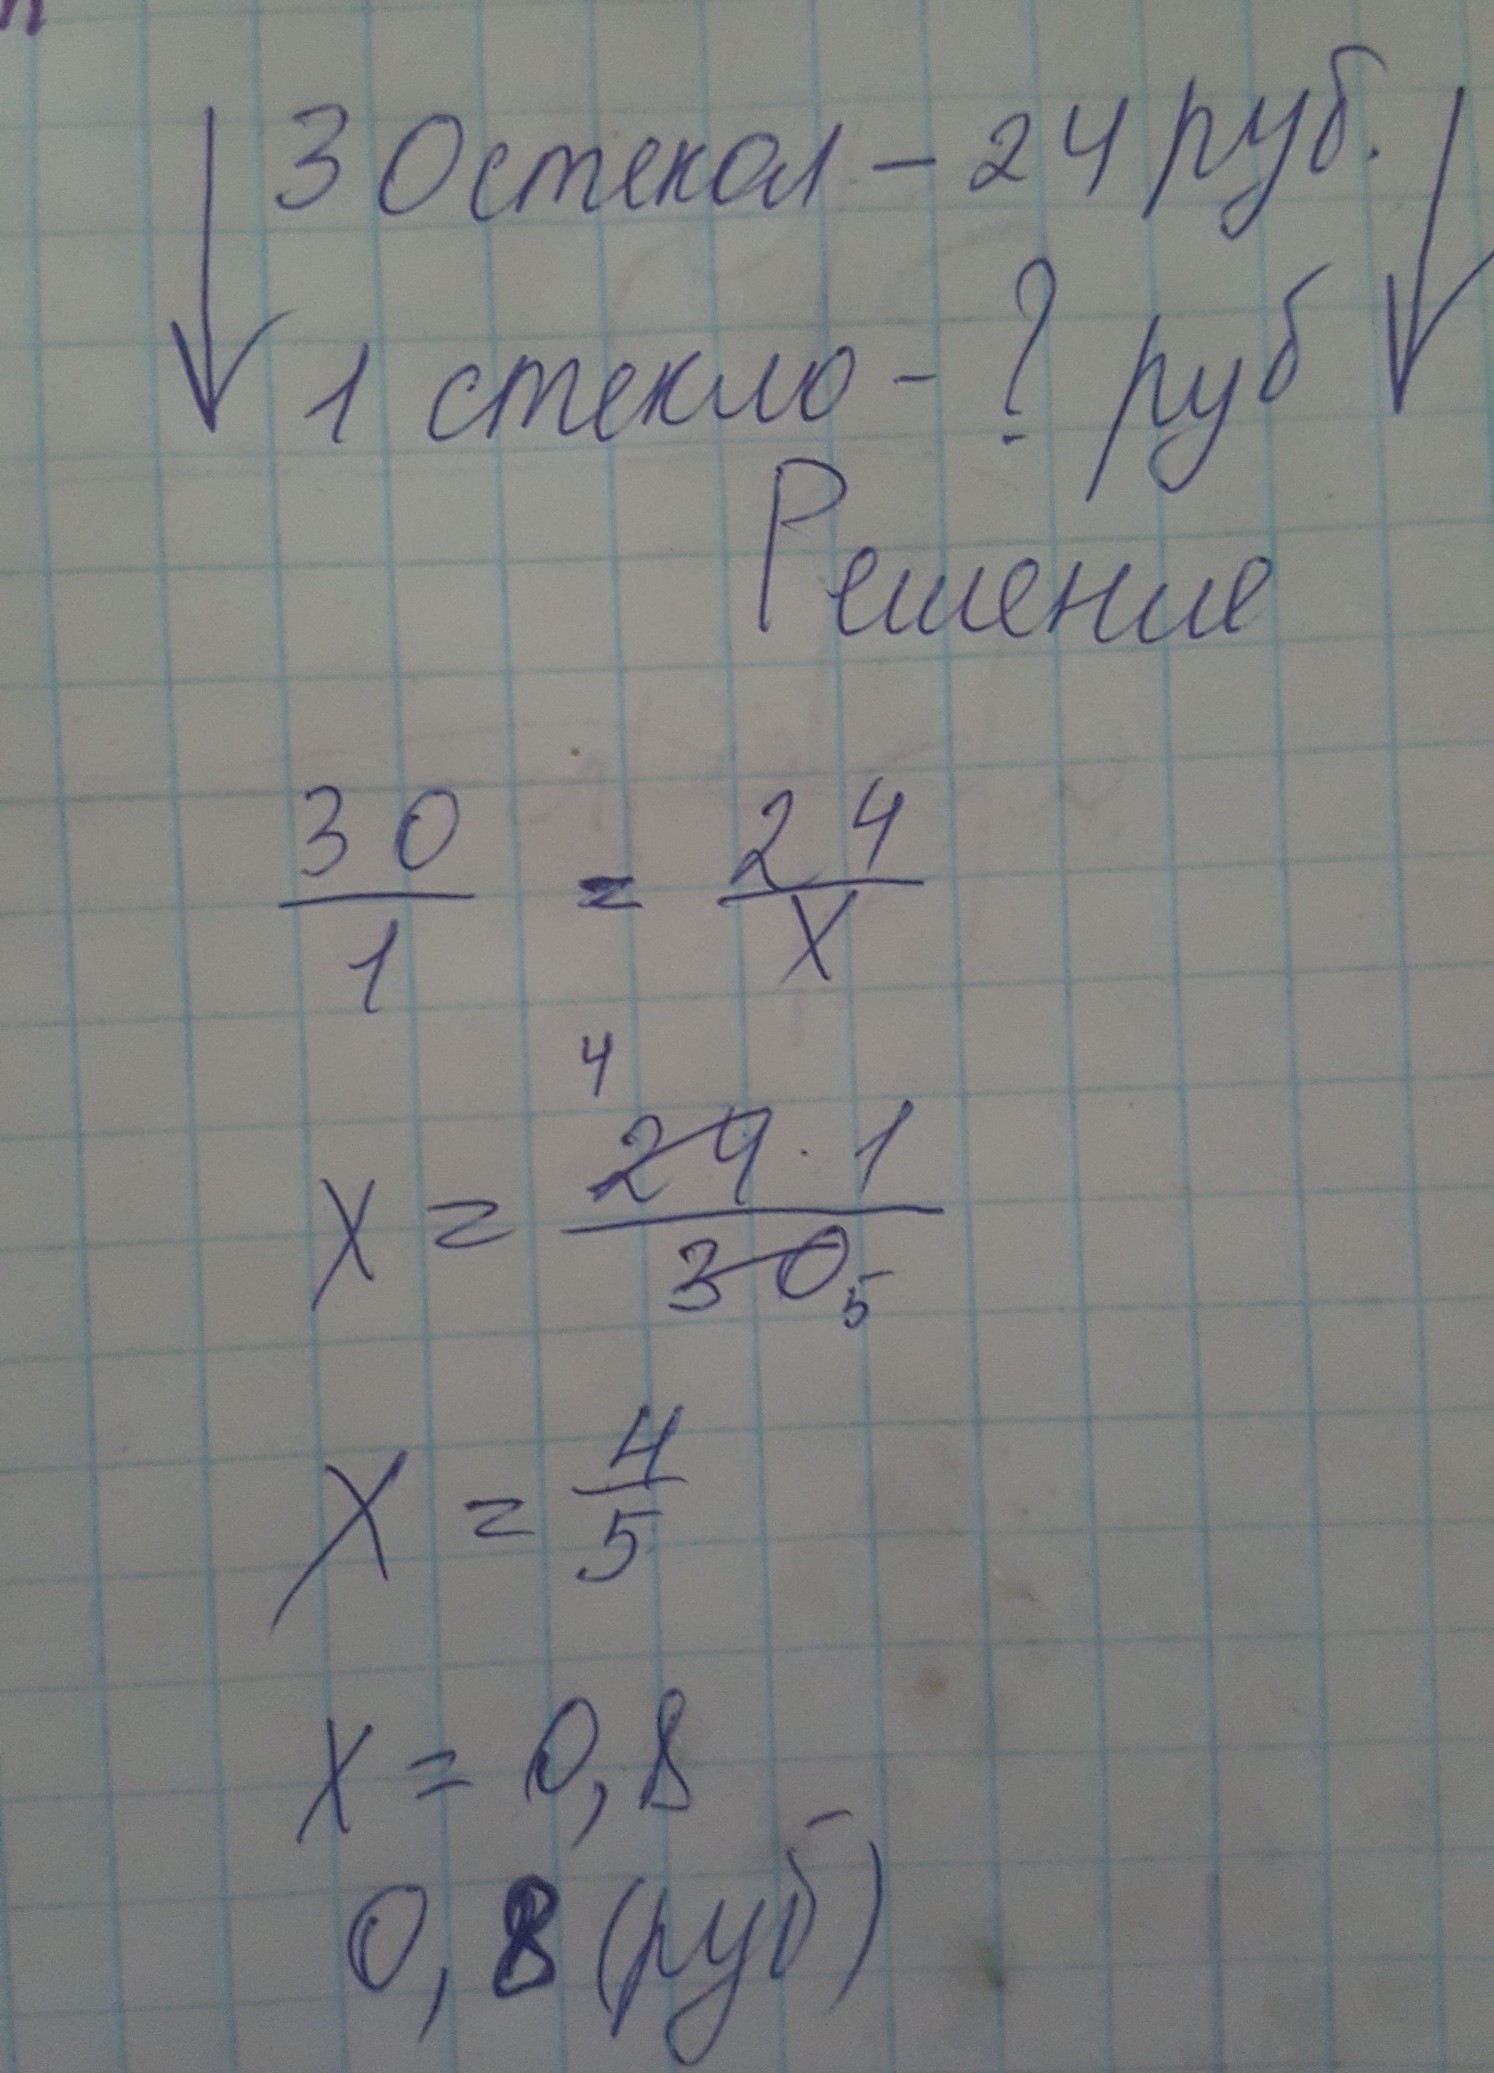 ↓ 30 стекол – 24 руб. ↓
1 стекло – ? руб
Решение
30/1 = 24/x
4
x = 24 · 1/30 5
x = 4/5
x = 0,8
0,8 (руб)